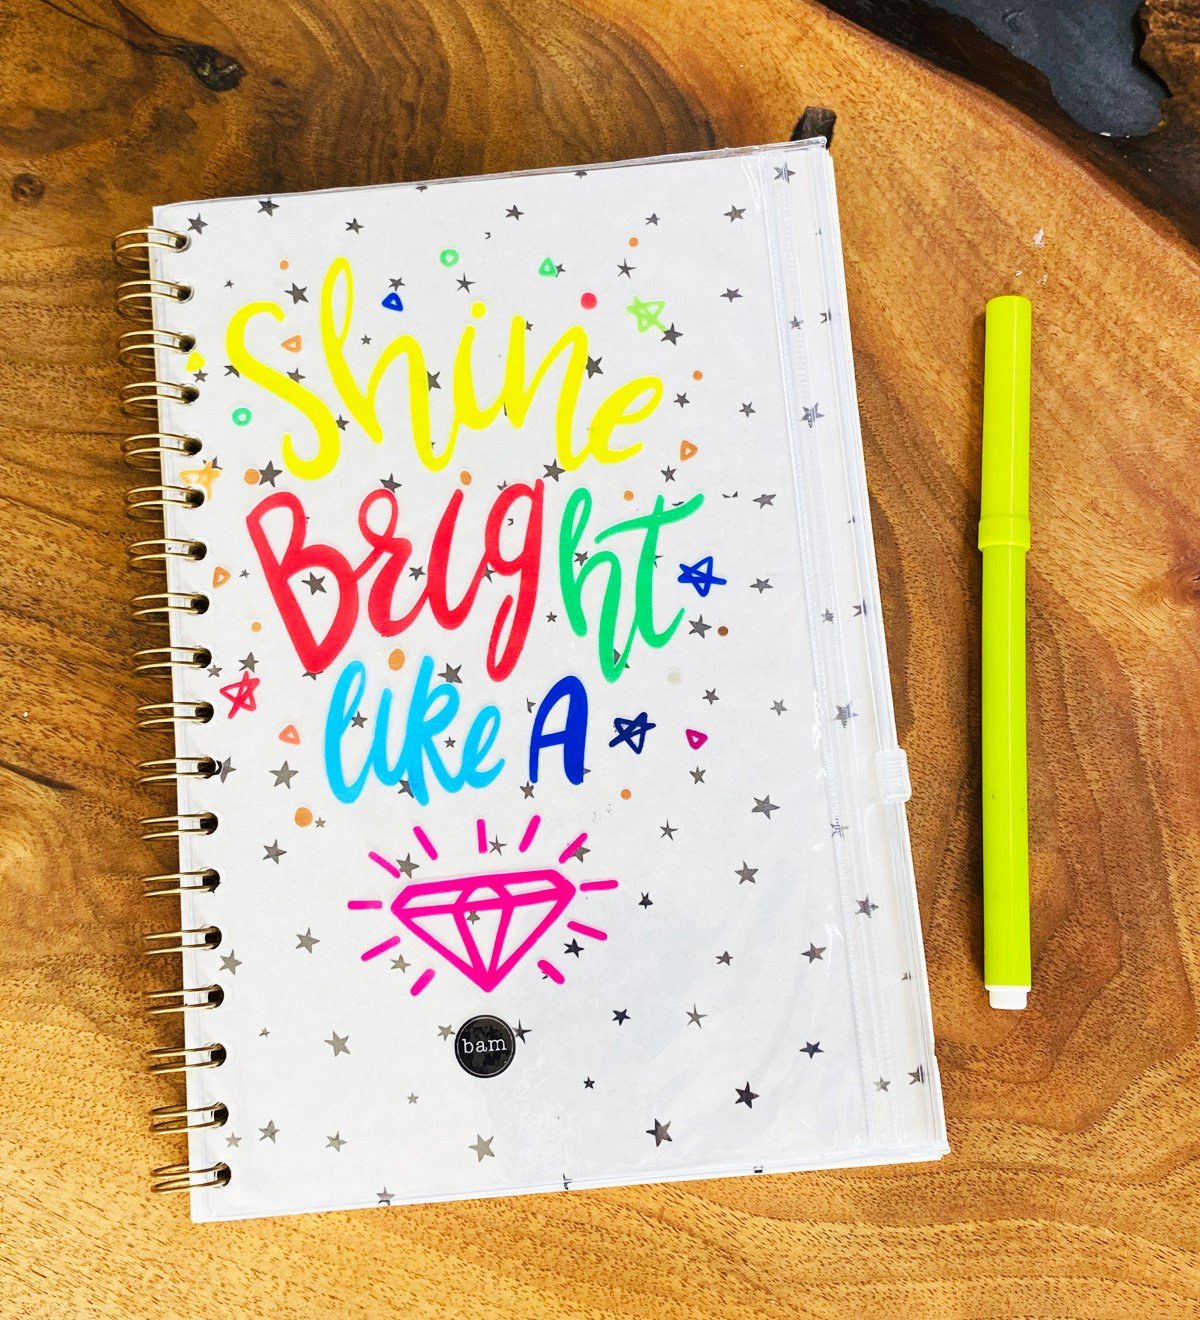 Shine
Bright
like A
bam